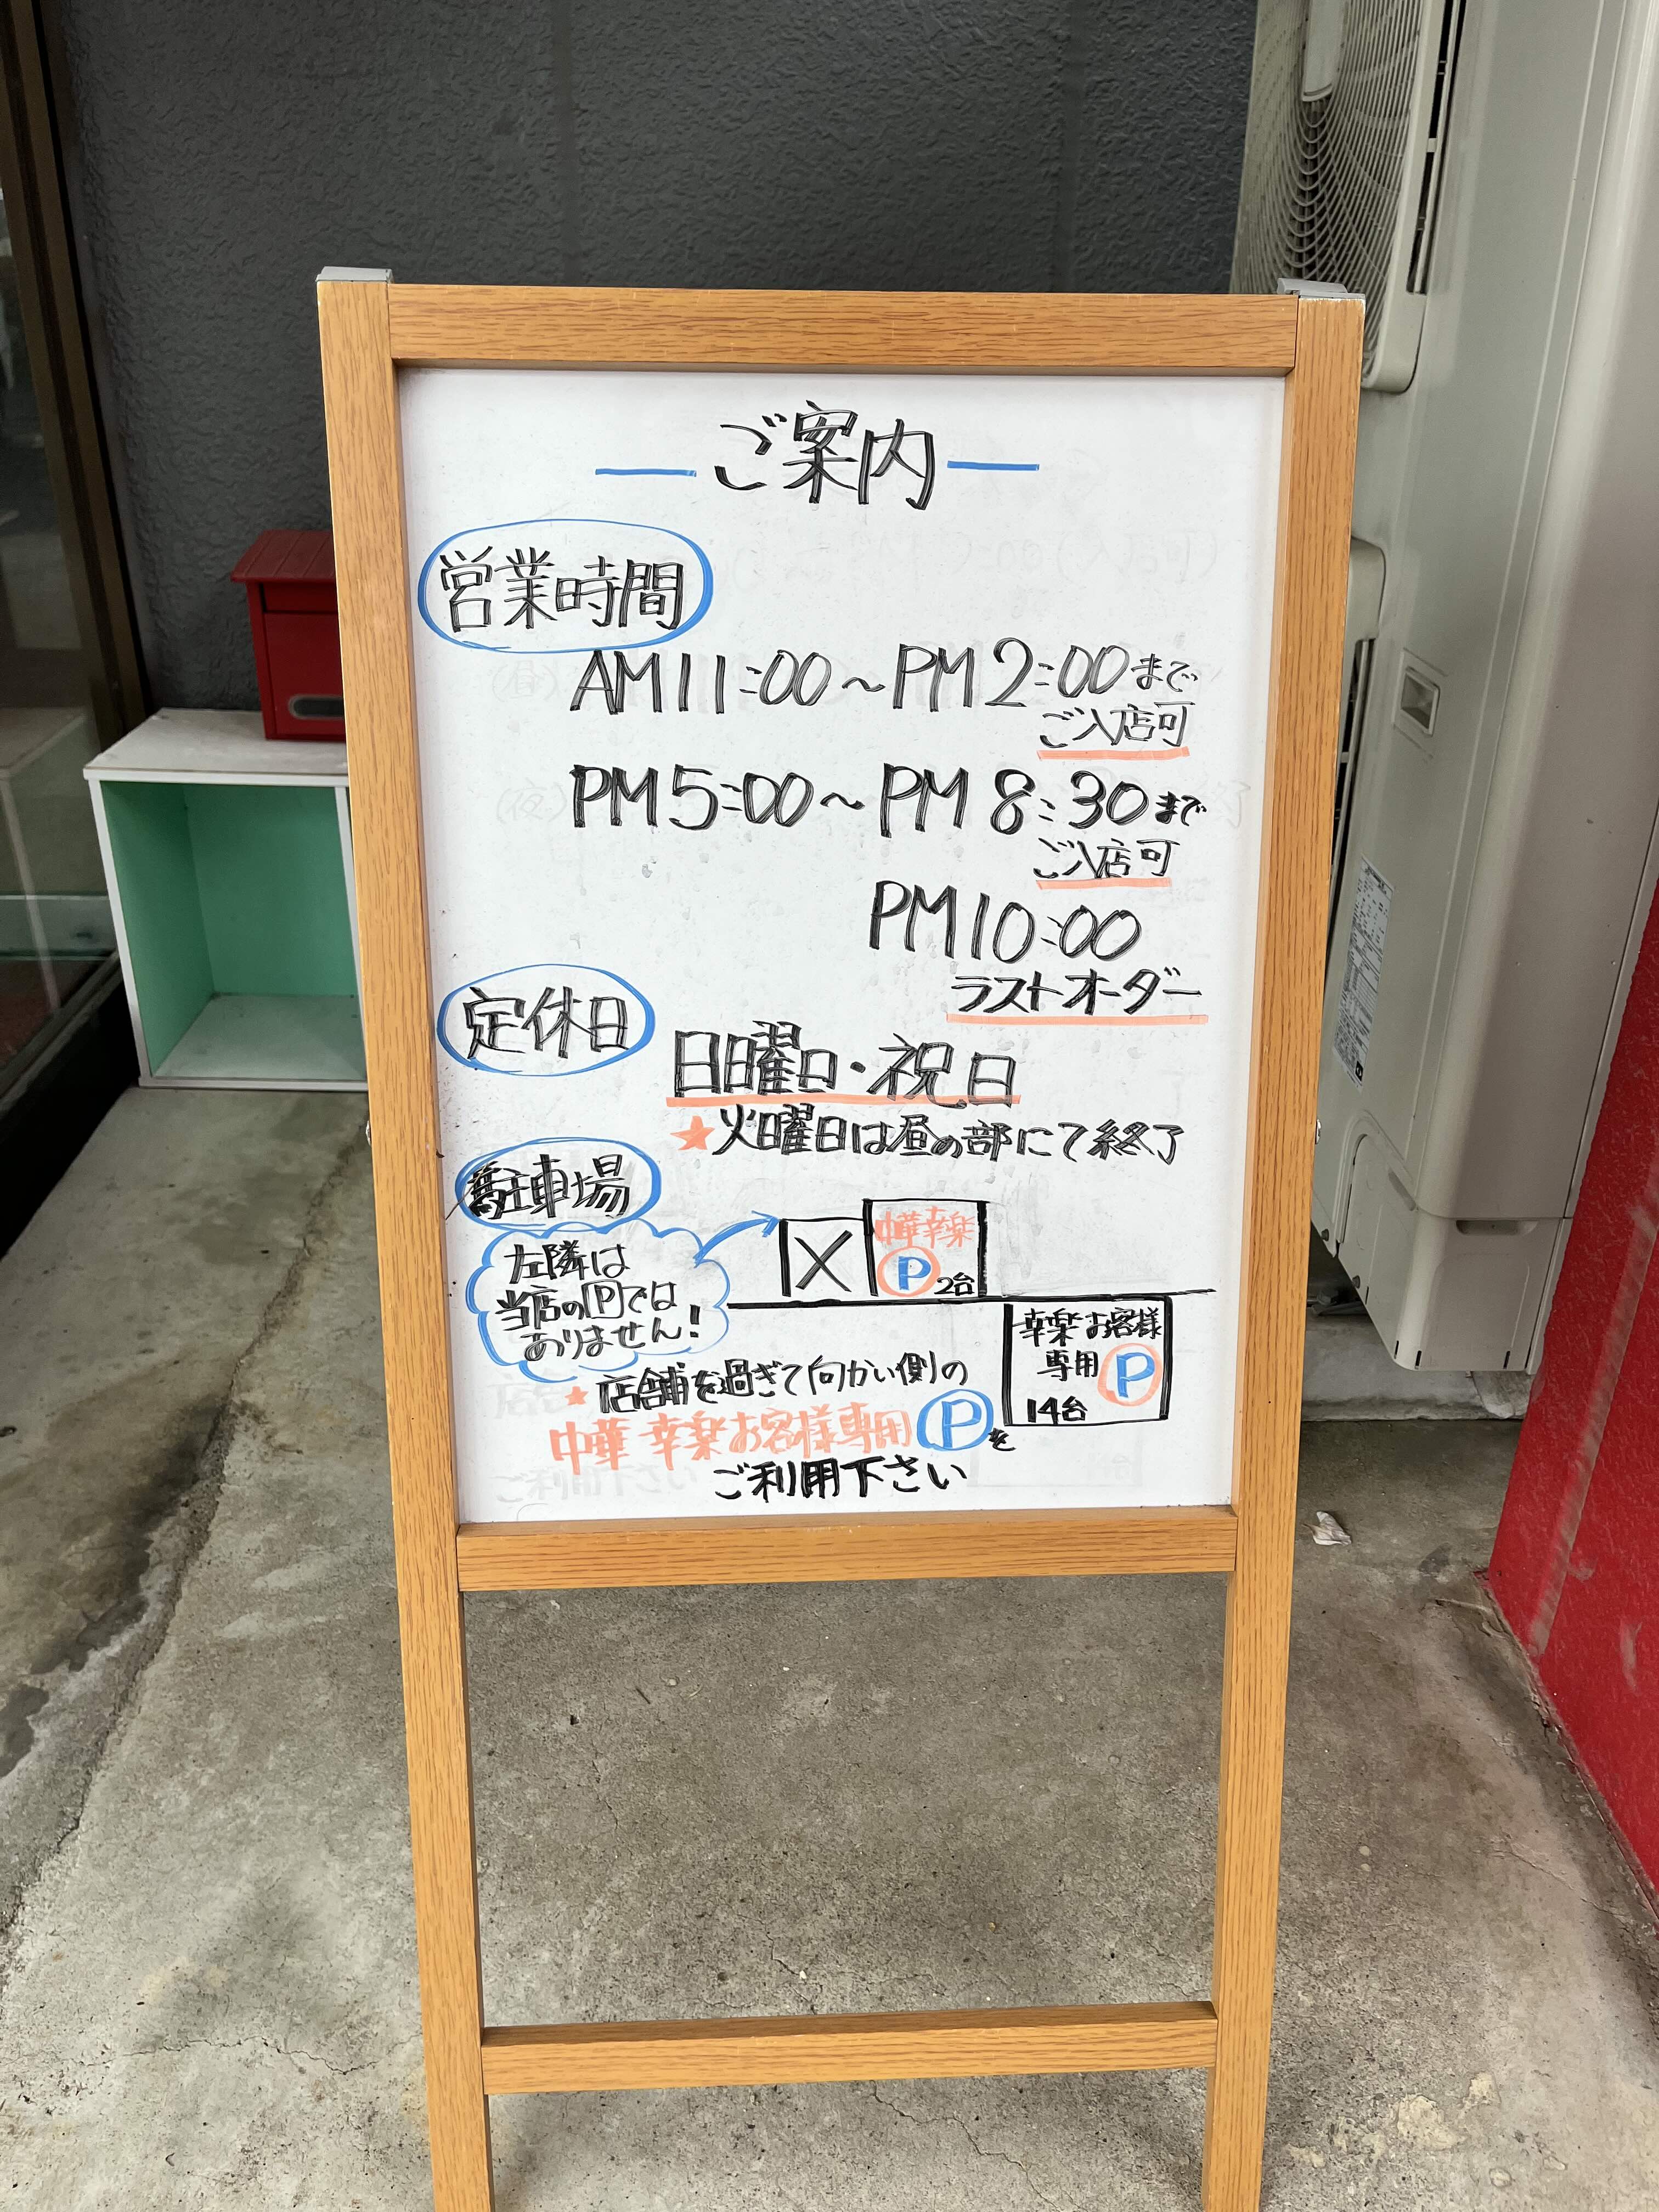 ご案内
営業時間
AM11:00～PM2:00まで
ご入店可
PM5:00～PM8:30まで
ご入店可
PM10:00
ラストオーダー
定休日
日曜日・祝日
★火曜日は昼の部にて終了
駐車場
左隣は
当店の[P]では
ありません!
X
中華幸楽
P 2台
幸楽お客様
専用 P
14台
★店舗を過ぎて向かい側の
中華 幸楽お客様専用 P を
ご利用下さい